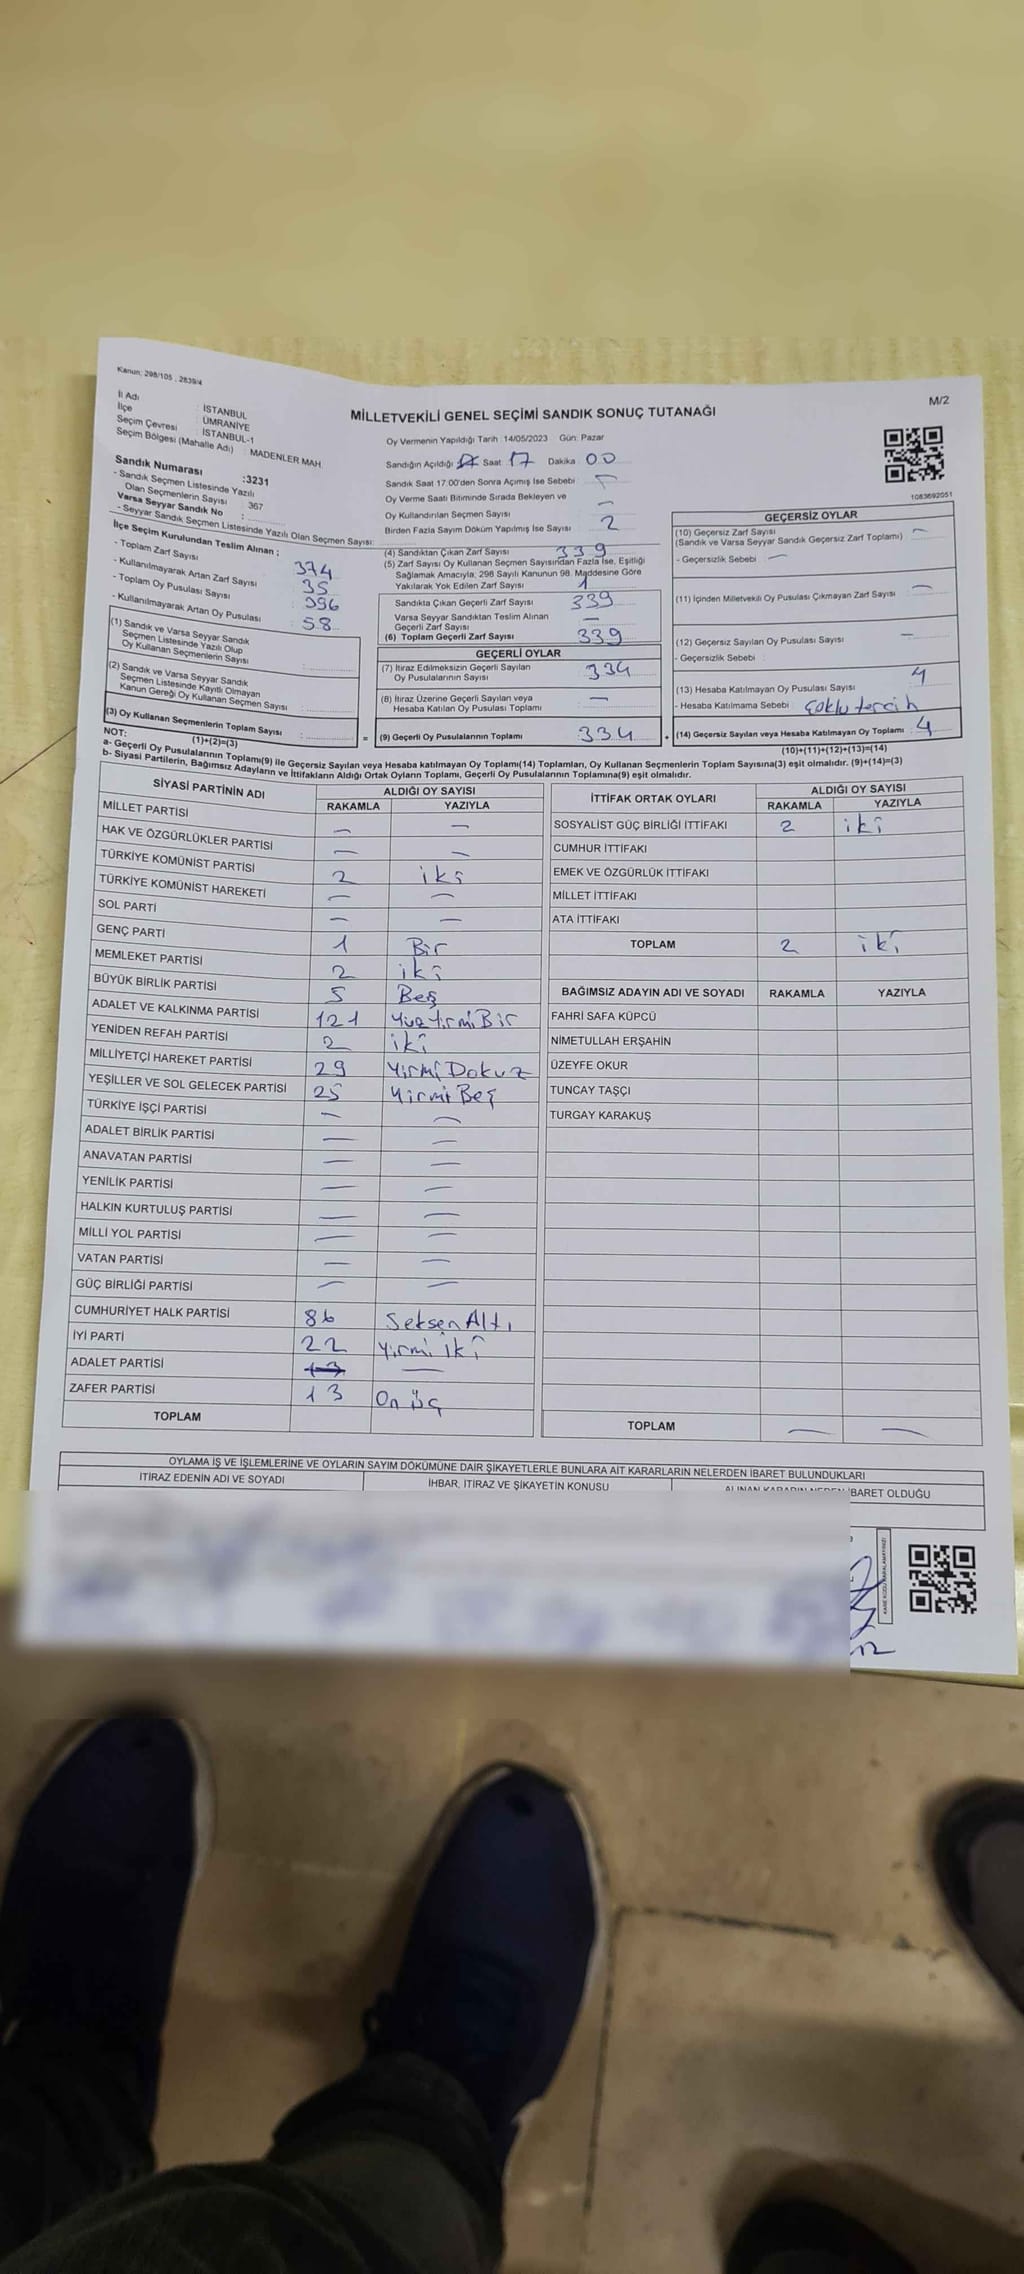 Kanun: 298/105 : 2839/4
M/2
İl Adı : İSTANBUL
İlçe : ÜMRANİYE
Seçim Çevresi : İSTANBUL-1
Seçim Bölgesi (Mahalle Adı) : MADENLER MAH.
MİLLETVEKİLİ GENEL SEÇİMİ SANDIK SONUÇ TUTANAĞI
Oy Vermenin Yapıldığı Tarih : 14/05/2023 Gün: Pazar
Sandığın Açıldığı Saat 17 Dakika 00
Sandık Saat 17:00'den Sonra Açımış İse Sebebi
Oy Verme Saati Bitiminde Sırada Bekleyen ve
Oy Kullandırılan Seçmen Sayısı —
Birden Fazla Sayım Döküm Yapılmış İse Sayısı 2
1083692051
Sandık Numarası :3231
- Sandık Seçmen Listesinde Yazılı
Olan Seçmenlerin Sayısı : 367
Varsa Seyyar Sandık No :
- Seyyar Sandık Seçmen Listesinde Yazılı Olan Seçmen Sayısı:
İlçe Seçim Kurulundan Teslim Alınan ;
- Toplam Zarf Sayısı : 374
- Kullanılmayarak Artan Zarf Sayısı : 35
- Toplam Oy Pusulası Sayısı : 396
- Kullanılmayarak Artan Oy Pusulası : 58
(1) Sandık ve Varsa Seyyar Sandık
Seçmen Listesinde Yazılı Olup
Oy Kullanan Seçmenlerin Sayısı :
(2) Sandık ve Varsa Seyyar Sandık
Seçmen Listesinde Kayıtlı Olmayan
Kanun Gereği Oy Kullanan Seçmen Sayısı :
(3) Oy Kullanan Seçmenlerin Toplam Sayısı :
(1)+(2)=(3)
(4) Sandıktan Çıkan Zarf Sayısı 339
(5) Zarf Sayısı Oy Kullanan Seçmen Sayısından Fazla İse, Eşitliği
Sağlamak Amacıyla, 298 Sayılı Kanunun 98. Maddesine Göre
Yakılarak Yok Edilen Zarf Sayısı 1
Sandıkta Çıkan Geçerli Zarf Sayısı 339
Varsa Seyyar Sandıktan Teslim Alınan
Geçerli Zarf Sayısı —
(6) Toplam Geçerli Zarf Sayısı 339
GEÇERLİ OYLAR
(7) İtiraz Edilmeksizin Geçerli Sayılan
Oy Pusulalarının Sayısı 334
(8) İtiraz Üzerine Geçerli Sayılan veya
Hesaba Katılan Oy Pusulası Toplamı —
= (9) Geçerli Oy Pusulalarının Toplamı :334
GEÇERSİZ OYLAR
(10) Geçersiz Zarf Sayısı —
(Sandık ve Varsa Seyyar Sandık Geçersiz Zarf Toplamı)
- Geçersizlik Sebebi : —
(11) İçinden Milletvekili Oy Pusulası Çıkmayan Zarf Sayısı —
(12) Geçersiz Sayılan Oy Pusulası Sayısı —
- Geçersizlik Sebebi :
(13) Hesaba Katılmayan Oy Pusulası Sayısı 4
- Hesaba Katılmama Sebebi : çoklu tercih
+ (14) Geçersiz Sayılan veya Hesaba Katılmayan Oy Toplamı : 4
(10)+(11)+(12)+(13)=(14)
NOT:
a- Geçerli Oy Pusulaları Toplamı(9) ile Geçersiz Sayılan veya Hesaba katılmayan Oy Toplamı(14) Toplamları, Oy Kullanan Seçmenlerin Toplam Sayısına(3) eşit olmalıdır. (9)+(14)=(3)
b- Siyasi Partilerin, Bağımsız Adayların ve İttifakların Aldığı Ortak Oyların Toplamı, Geçerli Oy Pusulalarının Toplamına(9) eşit olmalıdır.
SİYASİ PARTİNİN ADI ALDIĞI OY SAYISI
RAKAMLA YAZIYLA
MİLLET PARTİSİ — —
HAK VE ÖZGÜRLÜKLER PARTİSİ — —
TÜRKİYE KOMÜNİST PARTİSİ 2 iki
TÜRKİYE KOMÜNİST HAREKETİ — —
SOL PARTİ — —
GENÇ PARTİ 1 Bir
MEMLEKET PARTİSİ 2 iki
BÜYÜK BİRLİK PARTİSİ 5 Beş
ADALET VE KALKINMA PARTİSİ 121 YüzYirmiBir
YENİDEN REFAH PARTİSİ 2 iki
MİLLİYETÇİ HAREKET PARTİSİ 29 YirmiDokuz
YEŞİLLER VE SOL GELECEK PARTİSİ 25 YirmiBeş
TÜRKİYE İŞÇİ PARTİSİ — —
ADALET BİRLİK PARTİSİ — —
ANAVATAN PARTİSİ — —
YENİLİK PARTİSİ — —
HALKIN KURTULUŞ PARTİSİ — —
MİLLİ YOL PARTİSİ — —
VATAN PARTİSİ — —
GÜÇ BİRLİĞİ PARTİSİ — —
CUMHURİYET HALK PARTİSİ 86 SeksenAltı
İYİ PARTİ 22 Yirmi iki
ADALET PARTİSİ 13 —
ZAFER PARTİSİ 13 On üç
TOPLAM
İTTİFAK ORTAK OYLARI ALDIĞI OY SAYISI
RAKAMLA YAZIYLA
SOSYALİST GÜÇ BİRLİĞİ İTTİFAKI 2 iki
CUMHUR İTTİFAKI
EMEK VE ÖZGÜRLÜK İTTİFAKI
MİLLET İTTİFAKI
ATA İTTİFAKI
TOPLAM 2 iki
BAĞIMSIZ ADAYIN ADI VE SOYADI RAKAMLA YAZIYLA
FAHRİ SAFA KÜPCÜ
NİMETULLAH ERŞAHİN
ÜZEYFE OKUR
TUNCAY TAŞÇI
TURGAY KARAKUŞ
TOPLAM — —
OYLAMA İŞ VE İŞLEMLERİNE VE OYLARIN SAYIM DÖKÜMÜNE DAİR ŞİKAYETLERLE BUNLARA AİT KARARLARIN NELERDEN İBARET BULUNDUKLARI
İTİRAZ EDENİN ADI VE SOYADI İHBAR, İTİRAZ VE ŞİKAYETİN KONUSU ALINAN KARARIN NEDEN İBARET OLDUĞU